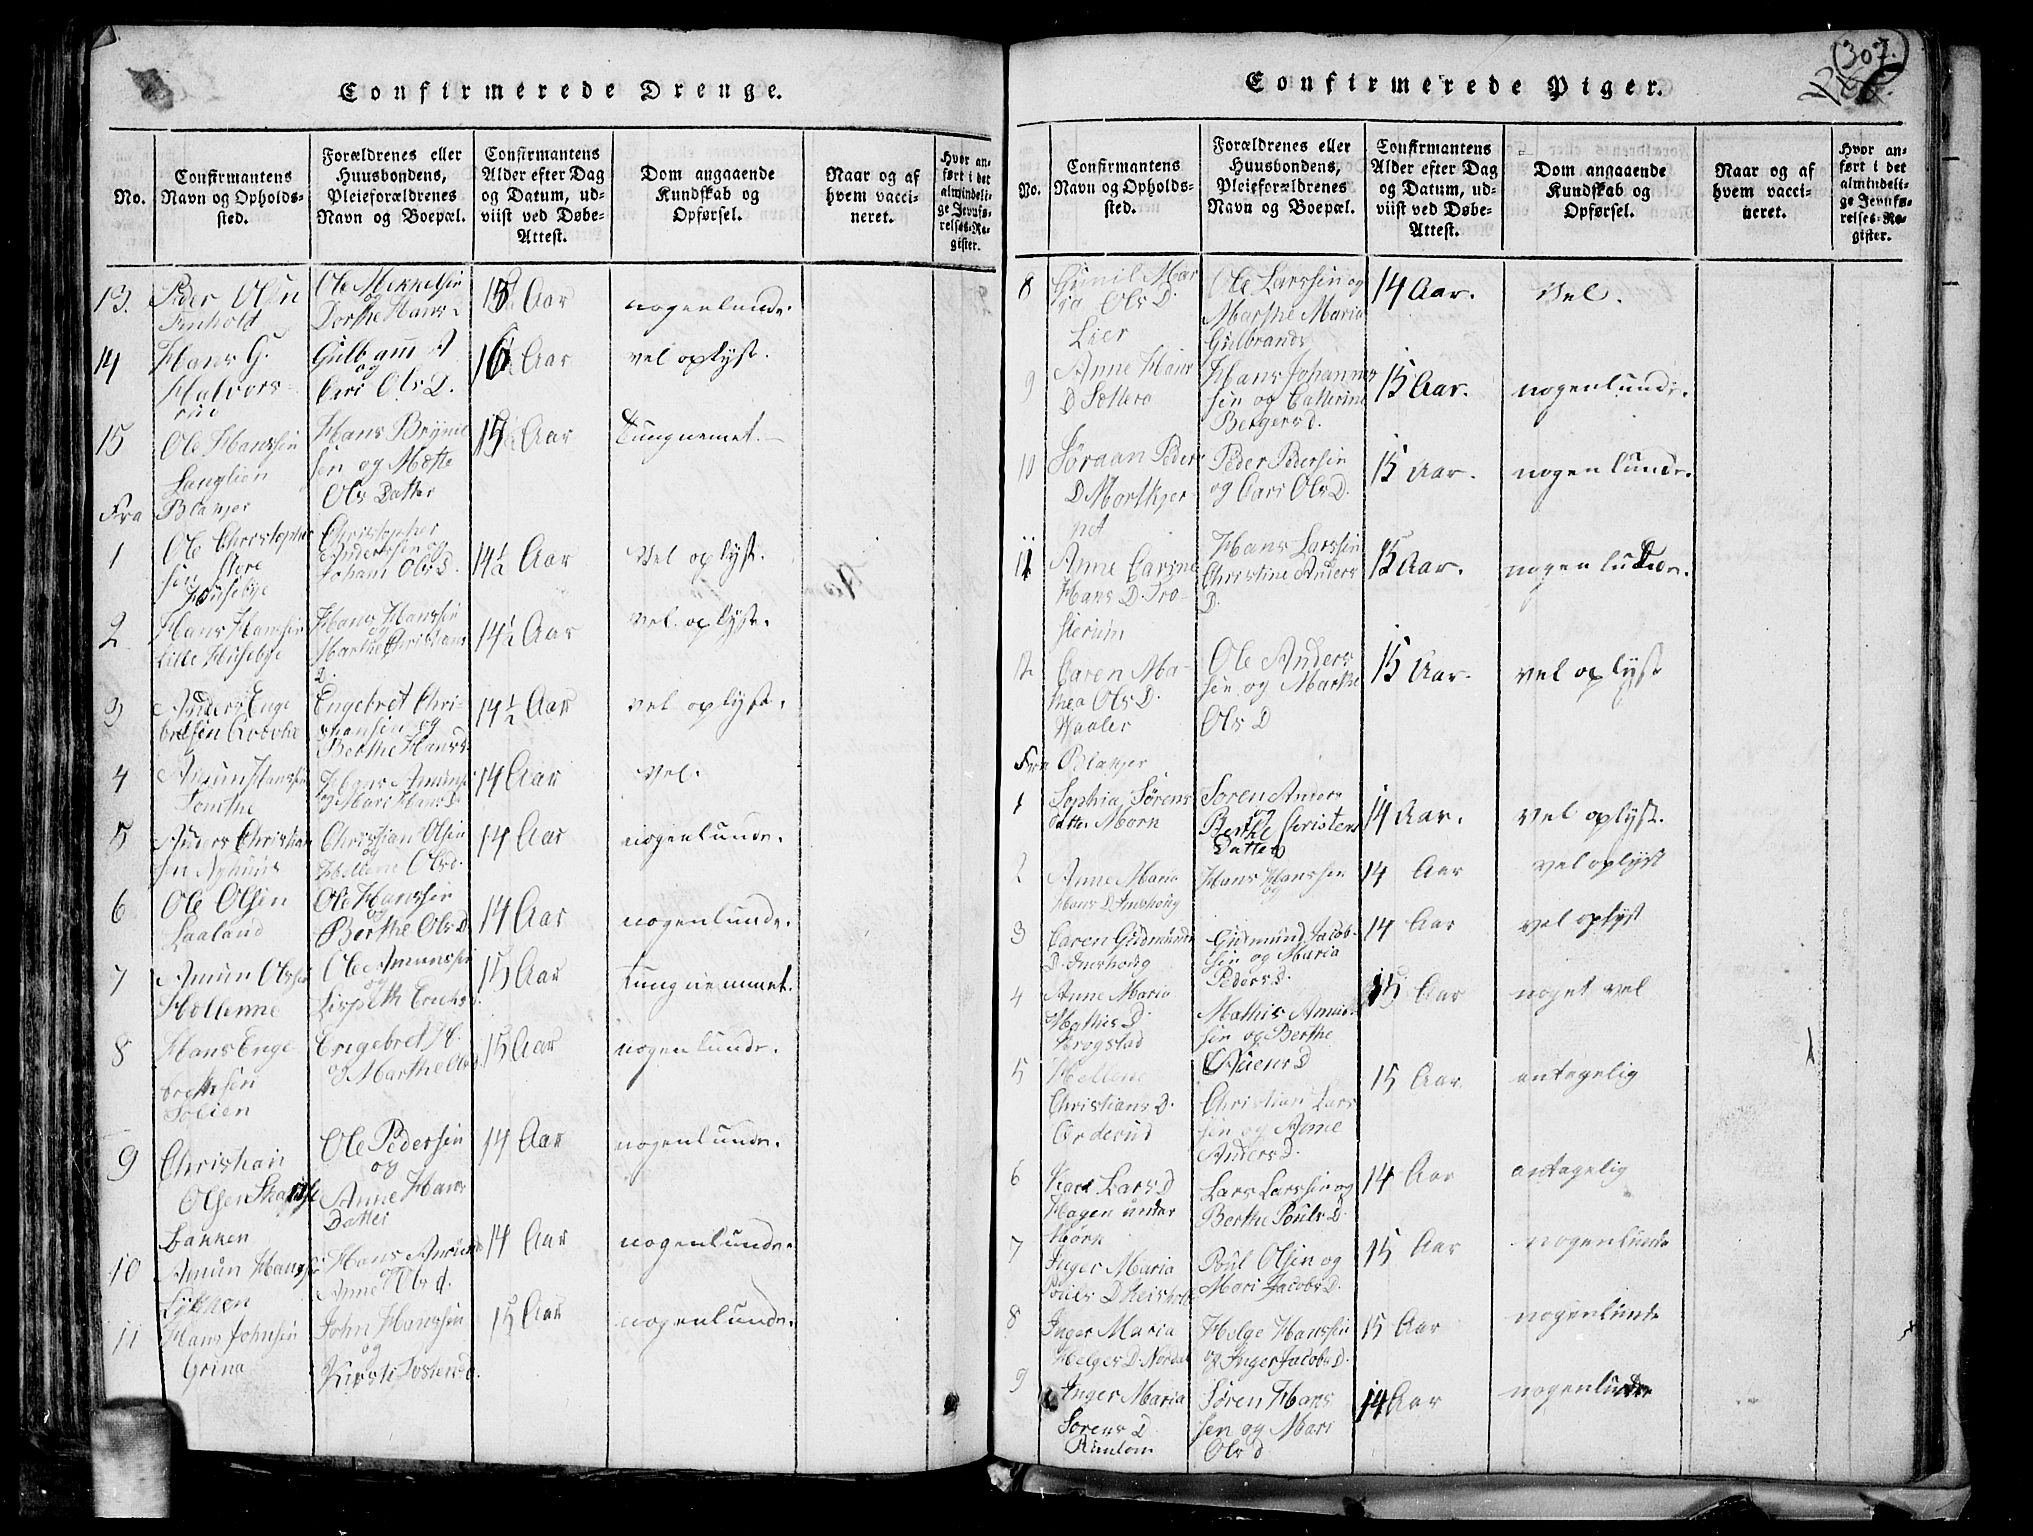 Confirmerede Drenge.
No.
Confirmantens
Navn og Opholds-
sted.
Forældrenes eller
Huusbondens,
Pleieforældrenes
Navn og Boepæl.
Confirmantens
Alder efter Dag
og Datum, ud-
viist ved Døbe-
Attest.
Dom angaaende
Kundskab og
Opførsel.
Naar og af
hvem vacci-
neret.
Hvor an-
ført i det
almindeli-
ge Jevnfø-
relses-Re-
gister.
13. Peder Olsen
Ole Mikkelsen
og
Dorthe Hans
15 Aar
nogenlunde.
14 Hans G.
Halvors-
rud
og
Olsd.
16 Aar
vel oplyst.
15 Ole Hanssen
Langlien
Hans
sen og Mette
Ols Datter
15 Aar
Tungnemet.
Fra Blakjer
1 Ole Christopher
sen Store
Husebye
Christopher
Anderssen og
Johani Olsd.
14½ Aar
Vel oplyst.
2 Hans Hanssen
Lille Husebye
Hans Hanssen
og
Marthe Christians
D.
14½ Aar
vel oplyst.
3 Anders Enge
bretsen
Engebret Chri-
stiansen og
Berthe Hansd.
14½ Aar
vel oplyst.
4 Amun Hanssen
Tomthe
Hans
og Mari Hansd.
14 Aar
Vel.
5 Anders Christian
sen
Christian Olsen
og
Hellene Olsd.
14 Aar
nogenlunde.
6 Ole Olsen
Laaland
Ole Hanssen
og
Berthe Olsd.
14 Aar
nogenlunde.
7 Amun Olssen
Ole Amunssen
og
Lispeth Erichs
15 Aar
Tungnemmet.
8 Hans Enge
brethsen
Solien
Engebret H.
og Marthe
15 Aar
nogenlunde.
9 Christian
Olsen
Bakken
Ole Pedersen
og
Anne Hans
Datter
14 Aar
nogenlunde.
10 Amun Hanssen
Lykken
Hans Amund
og
Anne Olsd.
14 Aar
nogenlunde.
11 Hans Johnsen
Grina
John Hanssen
og
Kirsti
15 Aar
nogenlunde.
Confirmerede Piger.
307.
No.
Confirmantens
Navn og Opholds-
sted.
Forældrenes eller
Huusbondens,
Pleieforældrenes
Navn og Boepæl.
Confirmantens
Alder efter Dag
og Datum, ud-
viist ved Døbe-
Attest.
Dom angaaende
Kundskab og
Opførsel.
Naar og af
hvem vacci-
neret.
Hvor an-
ført i det
almindeli-
ge Jevnfø-
relses-Re-
gister.
8 Gunil Mar
ia Ols D.
Lier
Ole Larssen og
Marthe Maria
Gulbrands
14 Aar.
Vel.
9 Anne Hans
D Sættera
Hans Johannes
sen og Catterine
Bergersd.
15 Aar.
nogenlunde.
10 Søraan Peders
D Mortkjer
Peder Pedersen
og Cari OlsD.
15 Aar.
nogenlunde.
11 Anne Carine
Hans D. Tro-
sterum
Hans Larssen
Christine Anders
D.
15 Aar.
nogenlunde.
12 Caren Ma-
thea Ols D.
Vaaler
Ole Anders
sen og Marthe
Ols D
15 Aar.
vel oplyst
Fra Blakjer
1 Sophia Sørens
datter Mørk
Søren Anders
og
Berthe Christens
Datter
14 Aar.
vel oplyst.
2 Anne Maria
Hans D
Hans Hanssen
og
14 Aar
vel oplyst
3 Caren Gudmunds
D.
Gudmund Jacob-
sen og Maria
Peders D.
14 Aar
vel oplyst
4 Anne Maria
Mathis D.
Krogstad
Mathis
sen og Berthe
15 Aar
noget vel
5 Hellene
Christians D.
Orderud
Christian Lars
sen og Anne
Anders D.
15 Aar
antagelig
6 Kari Lars D
Hagen under
Mørk
Lars Larssen og
Berthe Pouls D.
14 Aar
antagelig
7 Inger Maria
Pouls D
Poul Olsen og
Mari Jacobs D.
15 Aar
nogenlunde
8 Inger Maria
Helges D.
Helge Hanssen
og Inger Jacobs D.
15 Aar
nogenlunde
9 Inger Maria
Sørens D
Søren Hans
sen og Mari
Ols d
14 Aar
nogenlunde